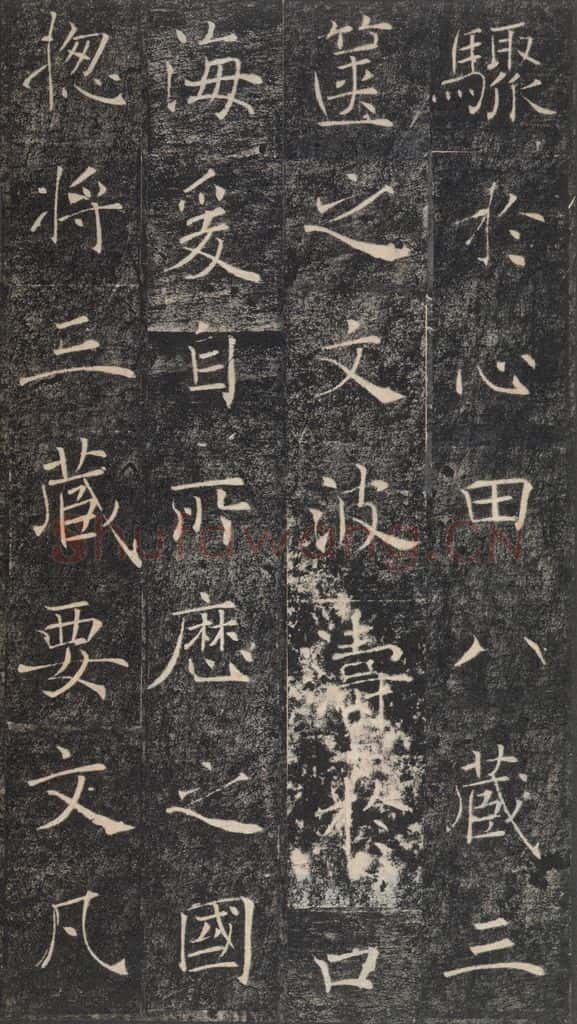 驟於心田八藏三
篋之文波濤於口
海爰自所歷之國
揔将三藏要文凡
shufawang.CN